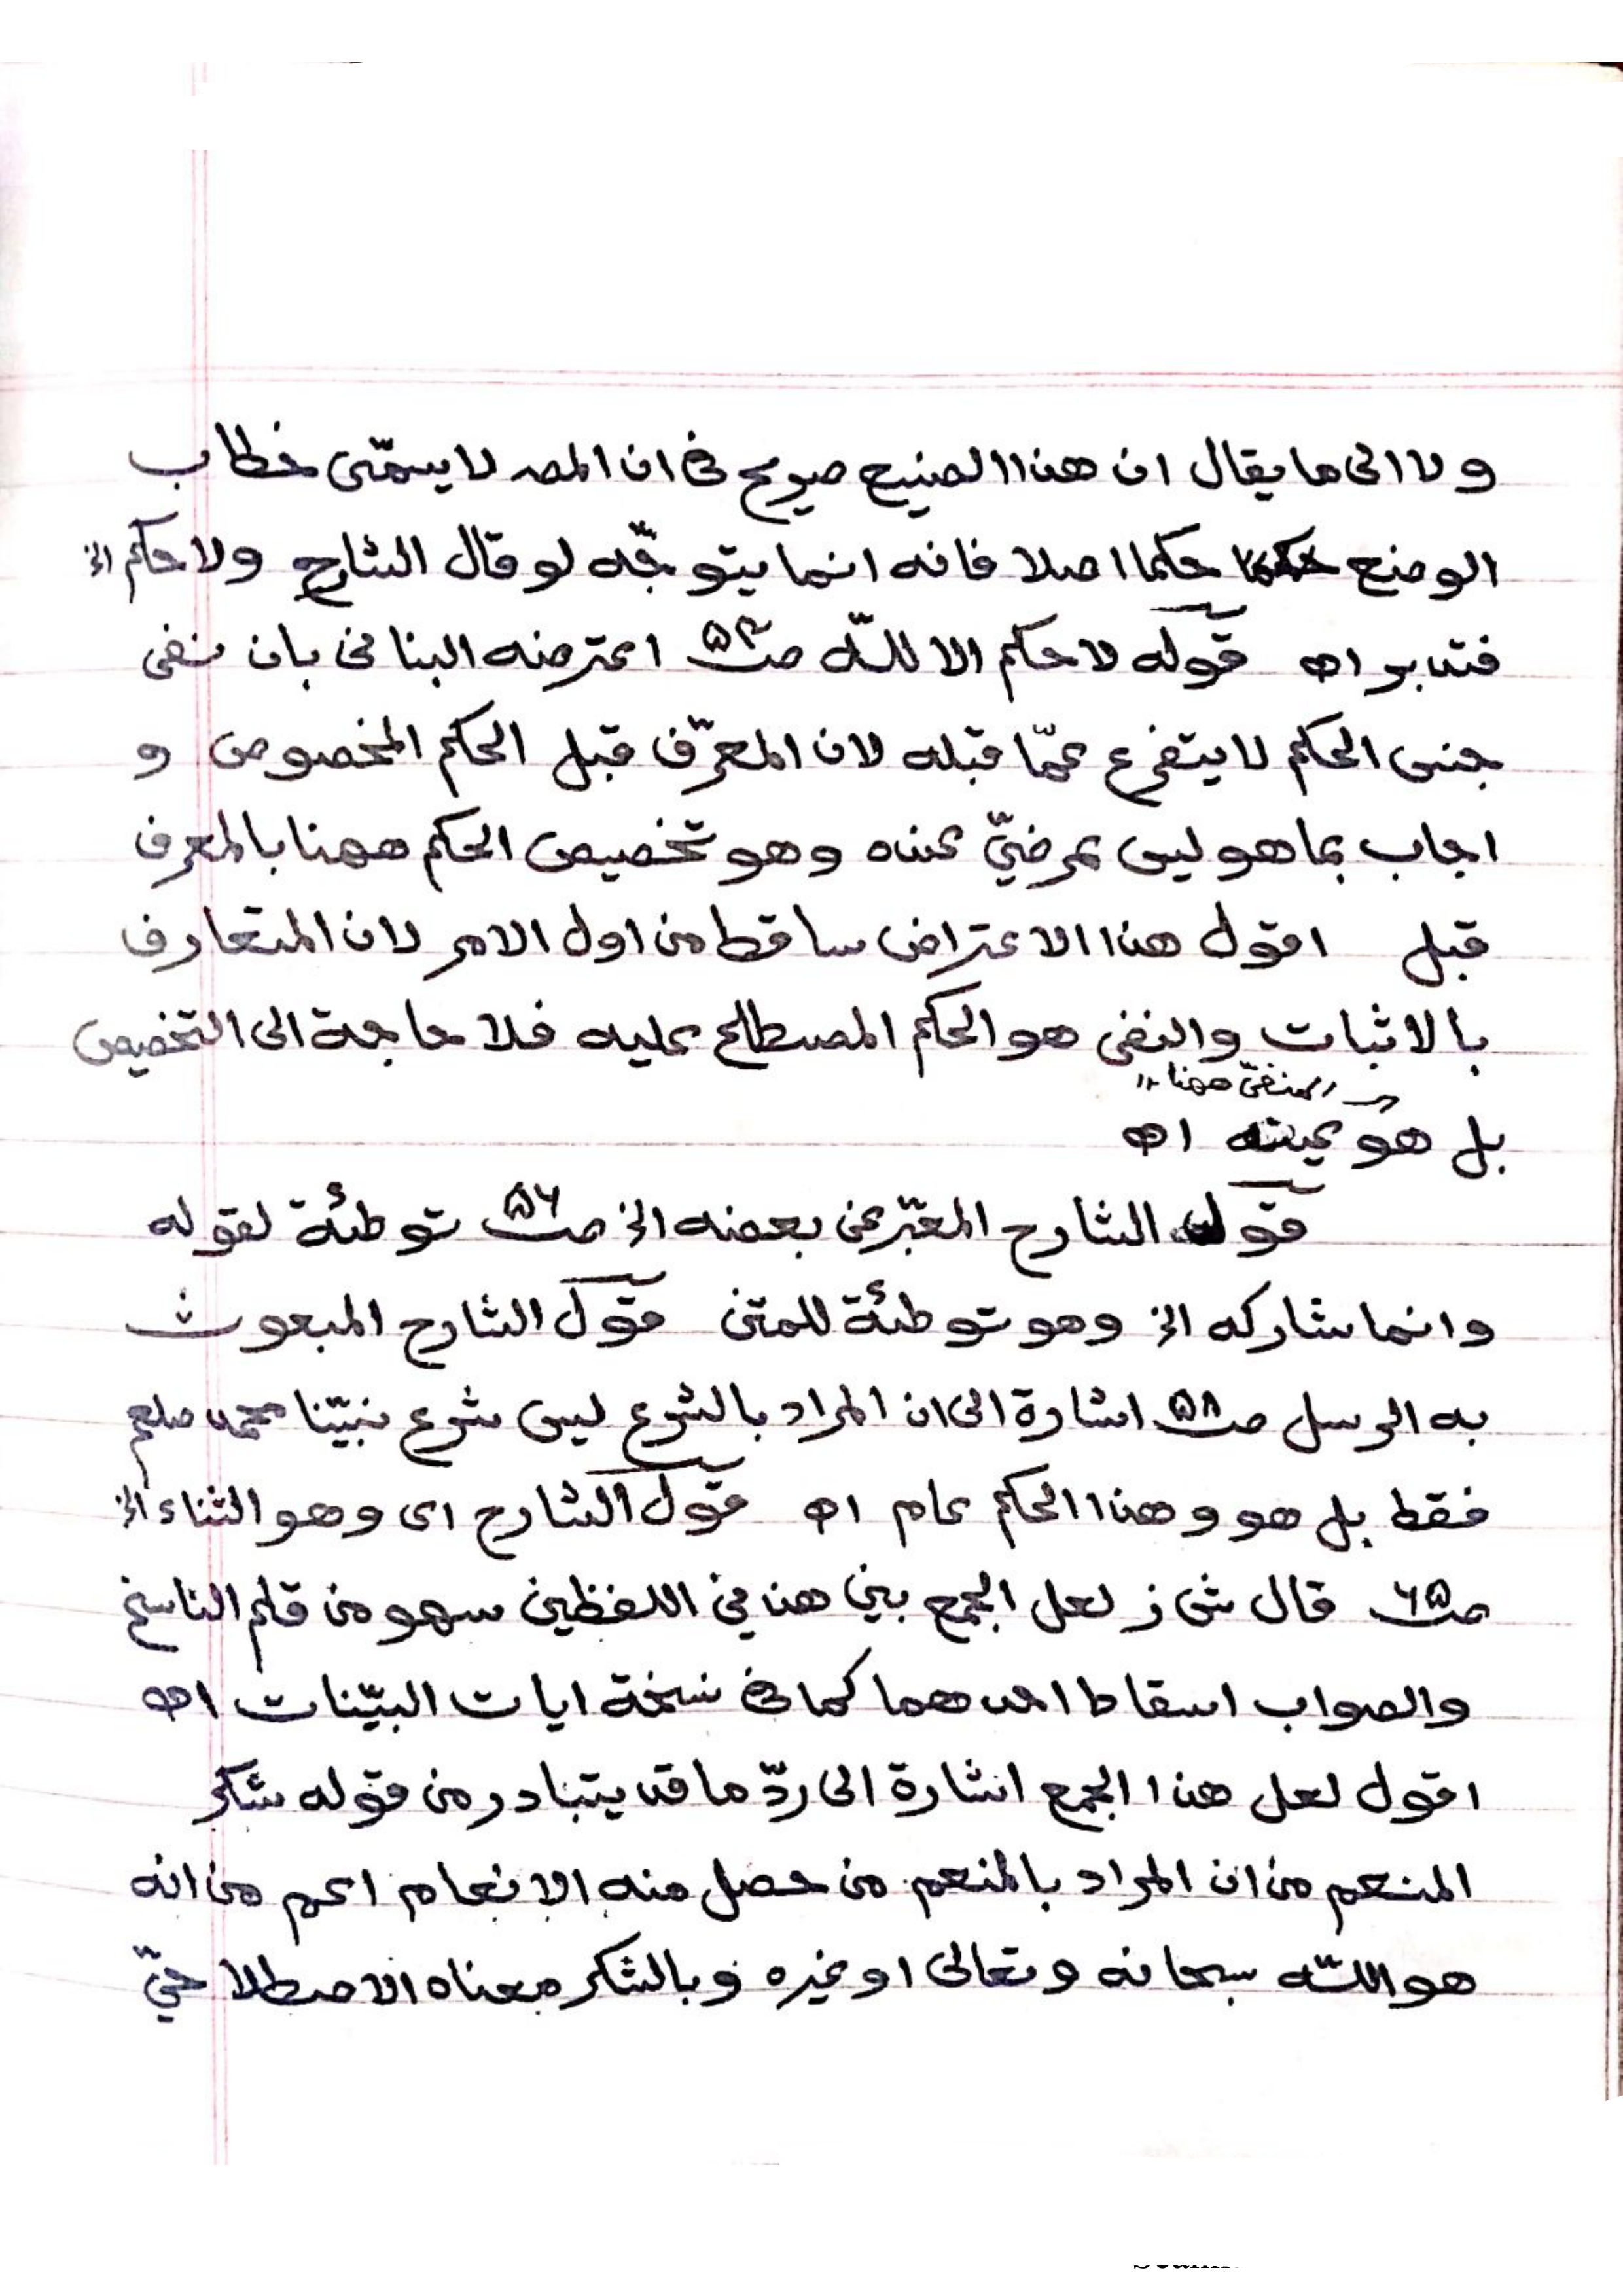 ولا الى ما يقال ان هذا الصنيع صريح فى ان المصـ لا يسمّى خطاب
الوضع حكما اصلا فانه انما يتوجّه لو قال الشارح ولا حكم الخ
فتدبر اه قوله لا حكم الا للّه صـ٥٣ اعترضه البنانى بان نفى
جنس الحكم لا يتفرع عمّا قبله لان المعرّف قبل الحكم المخصوص و
اجاب بما هو ليس بمرضيّ عنده وهو تخصيص الحكم ههنا بالمعرف
قبل اقول هذا الاعتراض ساقط من اول الامر لان المتعارف
بالاثبات والنفى هو الحكم المصطلح عليه فلا حاجة الى التخصيص
المنفىّ ههنا
بل هو عينه اه
قول الشارح المعبّر عن بعضه الخ صـ٥٦ توطئة لقوله
وانما شاركه الخ وهو توطئة للمتن قول الشارح المبعوث
به الرسل صـ٥٨ اشارة الى ان المراد بالشرع ليس شرع نبيّنا محمد صلعم
فقط بل هو وهذا الحكم عام اه قول الشارح اى وهو الثناء الخ
صـ٦٥ قال ش ز لعل الجمع بين هذين اللفظين سهو من قلم الناسخ
والصواب اسقاط احدهما كما فى نسخة ايات البيّنات اه
اقول لعل هذا الجمع اشارة الى ردّ ما قد يتبادر من قوله شكر
المنعم من ان المراد بالمنعم من حصل منه الانعام اعم من انه
هو اللّه سبحانه وتعالى او غيره وبالشكر معناه الاصطلاحيّ